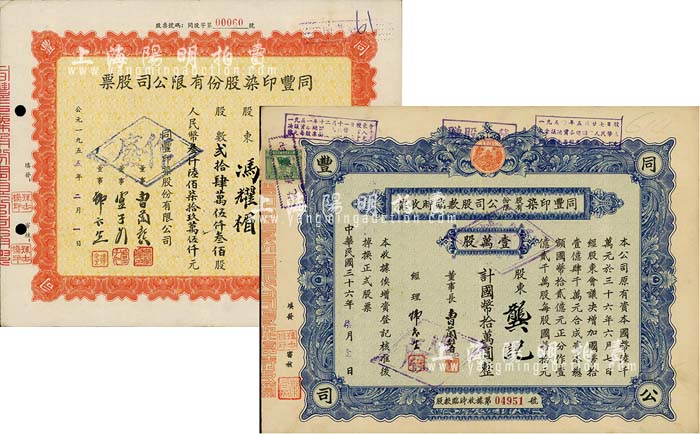 股票號碼：同股字第 00060 號
同豐
票股司公限有份股染印豐同
股東 馮耀楣
股數 貳拾肆萬伍仟叁佰股
人民幣叁仟陸佰柒拾玖萬伍仟元
同豐印染股份有限公司
董事
公元一九五五年二月一日
作廢
上海陽明拍賣
www.yangmingauction.com
同豐公司
同豐印染股份有限公司股款臨時收據
壹萬股
本公司原有資本國幣陸千
萬元於三十六年六月七日
經股東會議決增加國幣拾
壹億肆千萬元合成華幣總
額國幣拾貳億元正分作壹
億貳千萬股每股國幣拾元
股東 龔元
計國幣拾萬圓整
董事長
經理
本收據俟增資登記核准後
掉換正式股票
中華民國三十六年 柒月 日
填發
審核
股款臨時收據第 04951 號